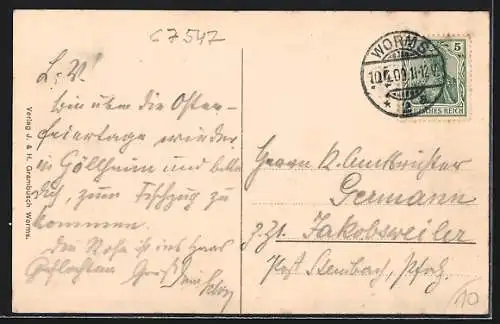 67547
L. V!
bin über die Oster-
feiertage wieder
in Göllheim und bitte
Dich, zum Fischzug zu
kommen.
Die Rose ist ins Haar
Geflochten Gruß! Dein
Verlag J. & H. Grambusch, Worms.
WORMS
10.
11-12 V.
* 2 *
5
DEUTSCHES REICH
Herrn K. Amtsrichter
Germann
z. Zt. Jakobsweiler
Post Steinbach, Pfalz.
10